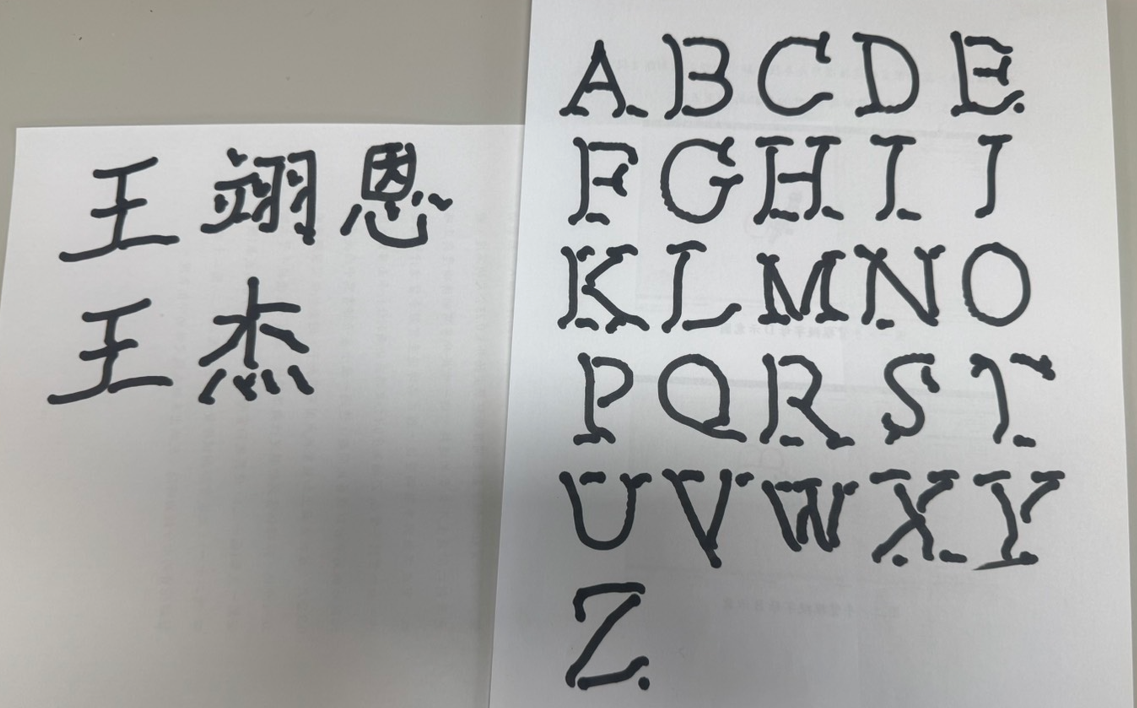 王翊恩
王杰
A B C D E
F G H I J
K L M N O
P Q R S T
U V W X Y
Z